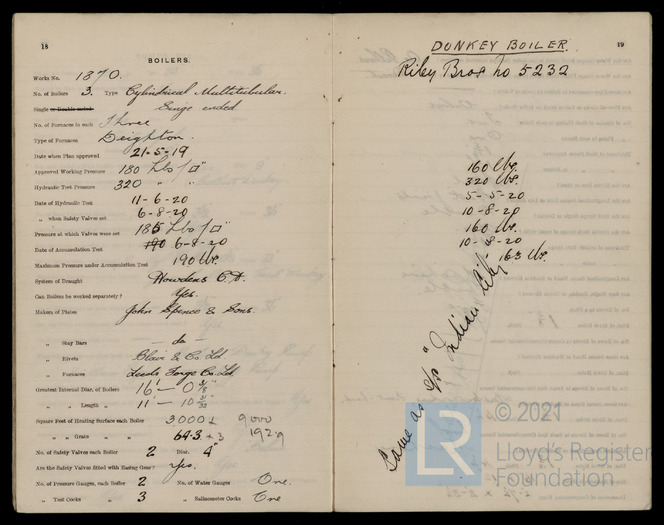 18
BOILERS.
Works No. 1870.
No. of Boilers 3. Type Cylindrical Multitubular.
Single or Double-ended Single ended
No. of Furnaces in each Three
Type of Furnaces Deighton.
Date when Plan approved 21-5-19
Approved Working Pressure 180 lbs/□"
Hydraulic Test Pressure 320 " "
Date of Hydraulic Test 11-6-20
" when Safety Valves set 6-8-20
Pressure at which Valves were set 185 lbs/□"
Date of Accumulation Test 190 6-8-20
Maximum Pressure under Accumulation Test 190 lbs.
System of Draught Howdens
Can Boilers be worked separately? Yes.
Makers of Plates John Spence & Sons.
" Stay Bars — do —
" Rivets Blair & Co. Ld
" Furnaces Leeds Forge Co. Ld
Greatest Internal Diam. of Boilers 16' - 0
" " Length " 11' - 10
Square Feet of Heating Surface each Boiler 3000 9000
" " Grate " 64.3 × 3 1929
No. of Safety Valves each Boiler 2 Diar. 4"
Are the Safety Valves fitted with Easing Gear? Yes.
No. of Pressure Gauges, each Boiler 2 No. of Water Gauges One.
" Test Cocks " 3 " Salinometer Cocks One
DONKEY BOILER. 19
Riley Bros no 5232
160 lbs.
320 lbs.
5-5-20
10-8-20
160 lbs.
10-8-20
163 lbs.
Same as S/S "Indian City
© 2021
LR
Lloyd's Register
Foundation